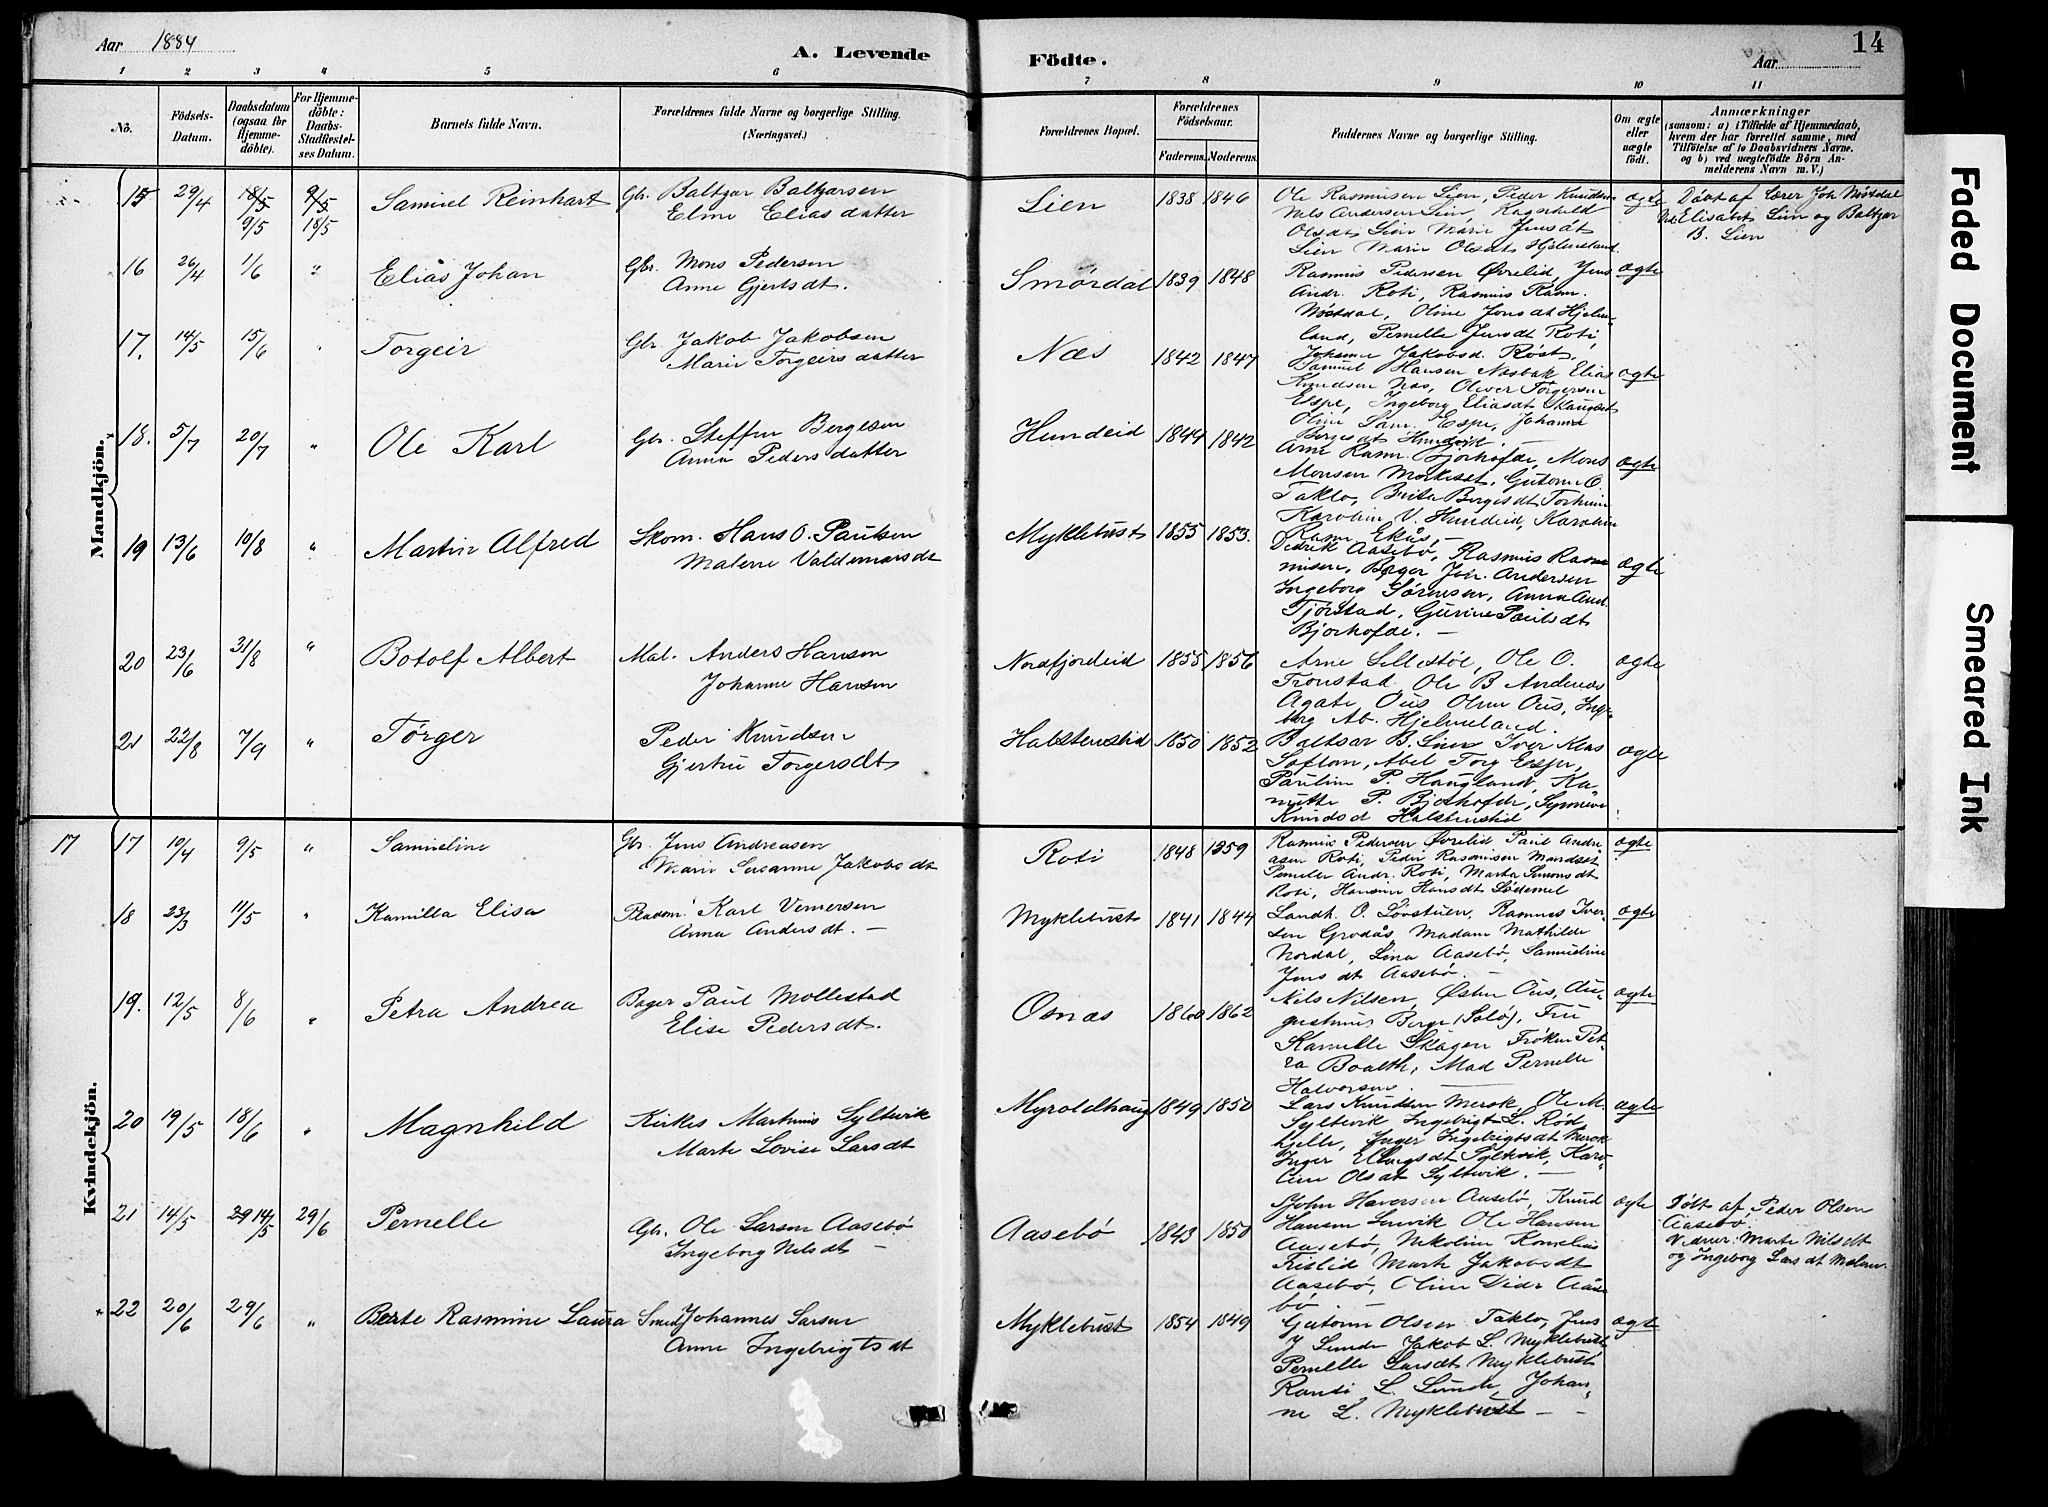 Aar 1884
A. Levende
Födte.
Aar
14
1 2 3 4 5 6 7 8 9 10 11
No.
Födsels-Datum.
Daabsdatum (ogsaa for Hjemme-döbte).
For Hjemme-döbte: Daabs-Stadfæstel-ses Datum.
Barnets fulde Navn.
Forældrenes fulde Navne og borgerlige Stilling. (Næringsvei.)
Forældrenes Bopæl.
Forældrenes Födselsaar.
Faderens. Moderens.
Faddernes Navne og borgerlige Stilling.
Om ægte eller uægte födt.
Anmærkninger
(saasom: a) i Tilfælde af Hjemmedaab, hvem der har forrettet samme, med Tilföielse af to Daabsvidners Navne, og b) ved uægtefödte Börn An-melderens Navn m. V.)
Mandkjön.
15 29/4 18/5 9/5 9/5 18/5 Samuel Reinhart Gbr. Baltzar Baltzarsen
Eline Eliasdatter
Lien 1838 1846 Ole Rasmusen Lien, Peder Knudsen
Nils Andersen Lien, Ragnhild
Olsdt Lien Marie Jensdt
Lien Marie Olsdt Hjelmeland
ægte
Døbt af Lærer Joh Nøstdal
Vid. Elisabet Lien og Baltzar
B. Lien
16 26/4 1/6 " Elias Johan Gbr. Mons Pedersen
Anne Gjertsdt.
Smørdal 1839 1848 Rasmus Pedersen Øvrelid, Jens
Andr. Roti, Rasmus Rasm.
Nøstdal, Oline Jonsdt Hjelme-
land, Pernelle Jensdt Roti,
Johanne Jakobsd. Røst.
ægte
17. 14/5 15/6 " Torgeir Gbr. Jakob Jakobsen
Marie Torgeirsdatter
Næs 1842 1847 Samuel Hansen Næsbak Elias
Knudsen Næs, Oliver Torgersen
Espe, Ingeborg Eliasdt
Oline Sam. Espe, Johanne
Børgesdt Hundeik.
ægte
18. 5/7 20/7 " Ole Karl Gbr. Steffen Børgesen
Anna Pedersdatter
Hundeid 1844 1842 Arne Rasm. Bjorhofde, Mons
Monsen Morkeset, Gutorm O.
Taklo, Brita Børgesdt
Karolin V. Hundeid, Karolin
Rasm Ekås, -
ægte
19 13/6 10/8 " Martin Alfred Skom. Hans O. Paulsen
Malene Valdemarsdt
Myklebust 1855 1853. Didrik Aasebø, Rasmus Rasm
musen, Bager Joh. Andersen
Ingeborg Sørensen, Anna And.
Tjørstad, Gurine Paulsdt
Bjorhofde. -
ægte
20 23/6 31/8 " Botolf Albert Mal. Anders Hansen
Johanne Hansen
Nordfjordeid 1855 1856 Arne Lillestøl, Ole O.
Tronstad, Ole B Andenæs
Agate Ous Oline Ous, Inge-
borg Ab. Hjelmeland.
ægte
21 22/8 7/9 " Tørger Peder Knudsen
Gjertrue Torgersdt
Halstensbid 1850 1852 Baltsar B. Lien Iver Klas
Loftom, Abel Torg Espe,
Pauline P. Haugland, Ka-
nutte P. Bjorhofde, Synneve
Knudsd Halstensbid
ægte
Kvindekjön.
17 17 10/4 9/5 " Samueline Gbr. Jens Andreasen
Marie Susanne Jakobsdt
Roti 1848 1859 Rasmus Pedersen Øvrelid Paul Andre-
asen Roti, Peder Rasmusen Mundset
Pernelle Andr. Roti, Marta Simonsdt
Roti, Hansine Hansdt Lødemel
ægte
18 23/3 11/5 " Kamilla Elisa Pladsm. Karl Vemersen
Anna Andersdt. -
Myklebust 1841 1844 Landh. O. Løvstuen, Rasmus Iver-
sen Grodås Madam Mathilde
Nordal, Lina Aasebø, Samueline
Jensdt Aasebø. -
ægte
19. 12/5 8/6 " Petra Andrea Bager Paul Mollestad
Elise Pedersdt.
Osnæs 1860 1862 Nils Nilsen, Østen Ous, Au-
gustinus Berge (Solø), Fru
Kamille Skagen Frøken Pet-
ra Boalth, Mad Pernelle
Halvorsen.
ægte
20 19/5 18/6 " Magnhild Kirkes Martinus Syltevik
Marte Lovise Larsdt
Myroldhaug 1849 1850 Lars Knudsen Mersk, Ole M.
Syltevik Ingebrigt L. Rød
hjelle, Inger Ingebrigtsdt Mersk
Inger Ellingsdt Syltevik, Karo-
line Olsdt Syltevik. -
ægte
21 14/5 29 14/5 29/6 Pernelle Gbr. Ole Larsen Aasebø.
Ingeborg Nilsdt -
Aasebø 1843 1850 John Haversen Aasebø, Knud
Hansen Lervik Ole Hansen
Aasebø, Nikoline Kornelius
Frislid Marte Jakobsdt
Aasebø, Oline Didr Aase-
bø. -
ægte
Døbt af Peder Olsen
Aasebø.
Vidner: Marte Nilsdt
og Ingeborg Larsdt
22 20/6 29/6 " Berte Rasmine Laura Smed Johannes Larsen
Anne Ingebrigtsdt
Myklebust 1854 1849 Gutorm Olsen Taklo, Jens
J Lunde Jakob L. Myklebust
Pernelle Larsdt Myklebust
Randi L. Lunde, Johan-
ne L. Myklebust - -
ægte
Faded Document
Smeared Ink